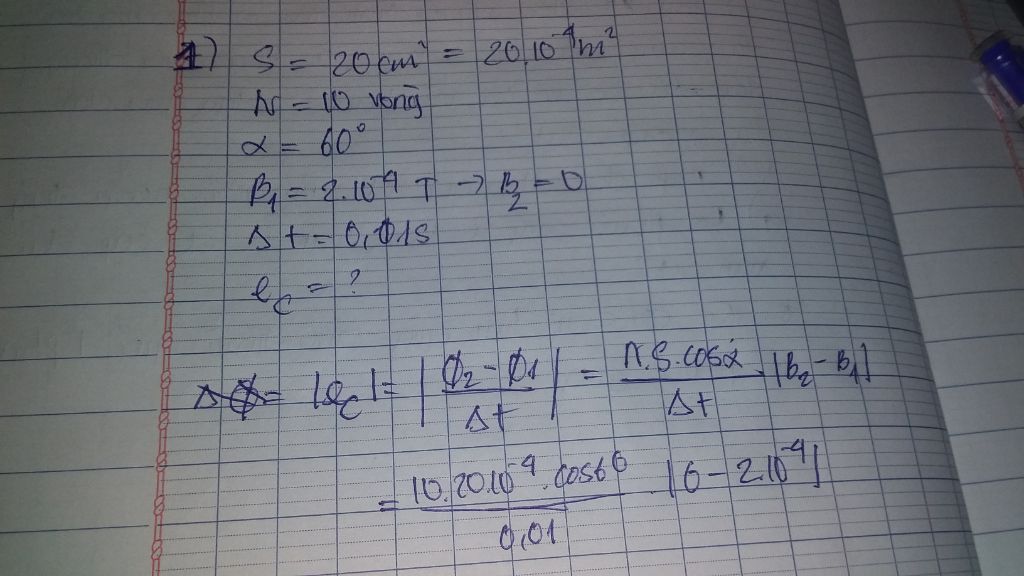 1) S = 20 cm² = 20.10⁻⁴ m²
N = 10 vòng
α = 60°
B₁ = 2.10⁻⁴ T → B₂ = 0
Δt = 0,01s
e_C = ?
ΔΦ = |e_C| = |Φ₂ - Φ₁ / Δt| = N.S.cosα / Δt . |B₂ - B₁|
= 10.20.10⁻⁴.cos60 / 0,01 . |0 - 2.10⁻⁴|